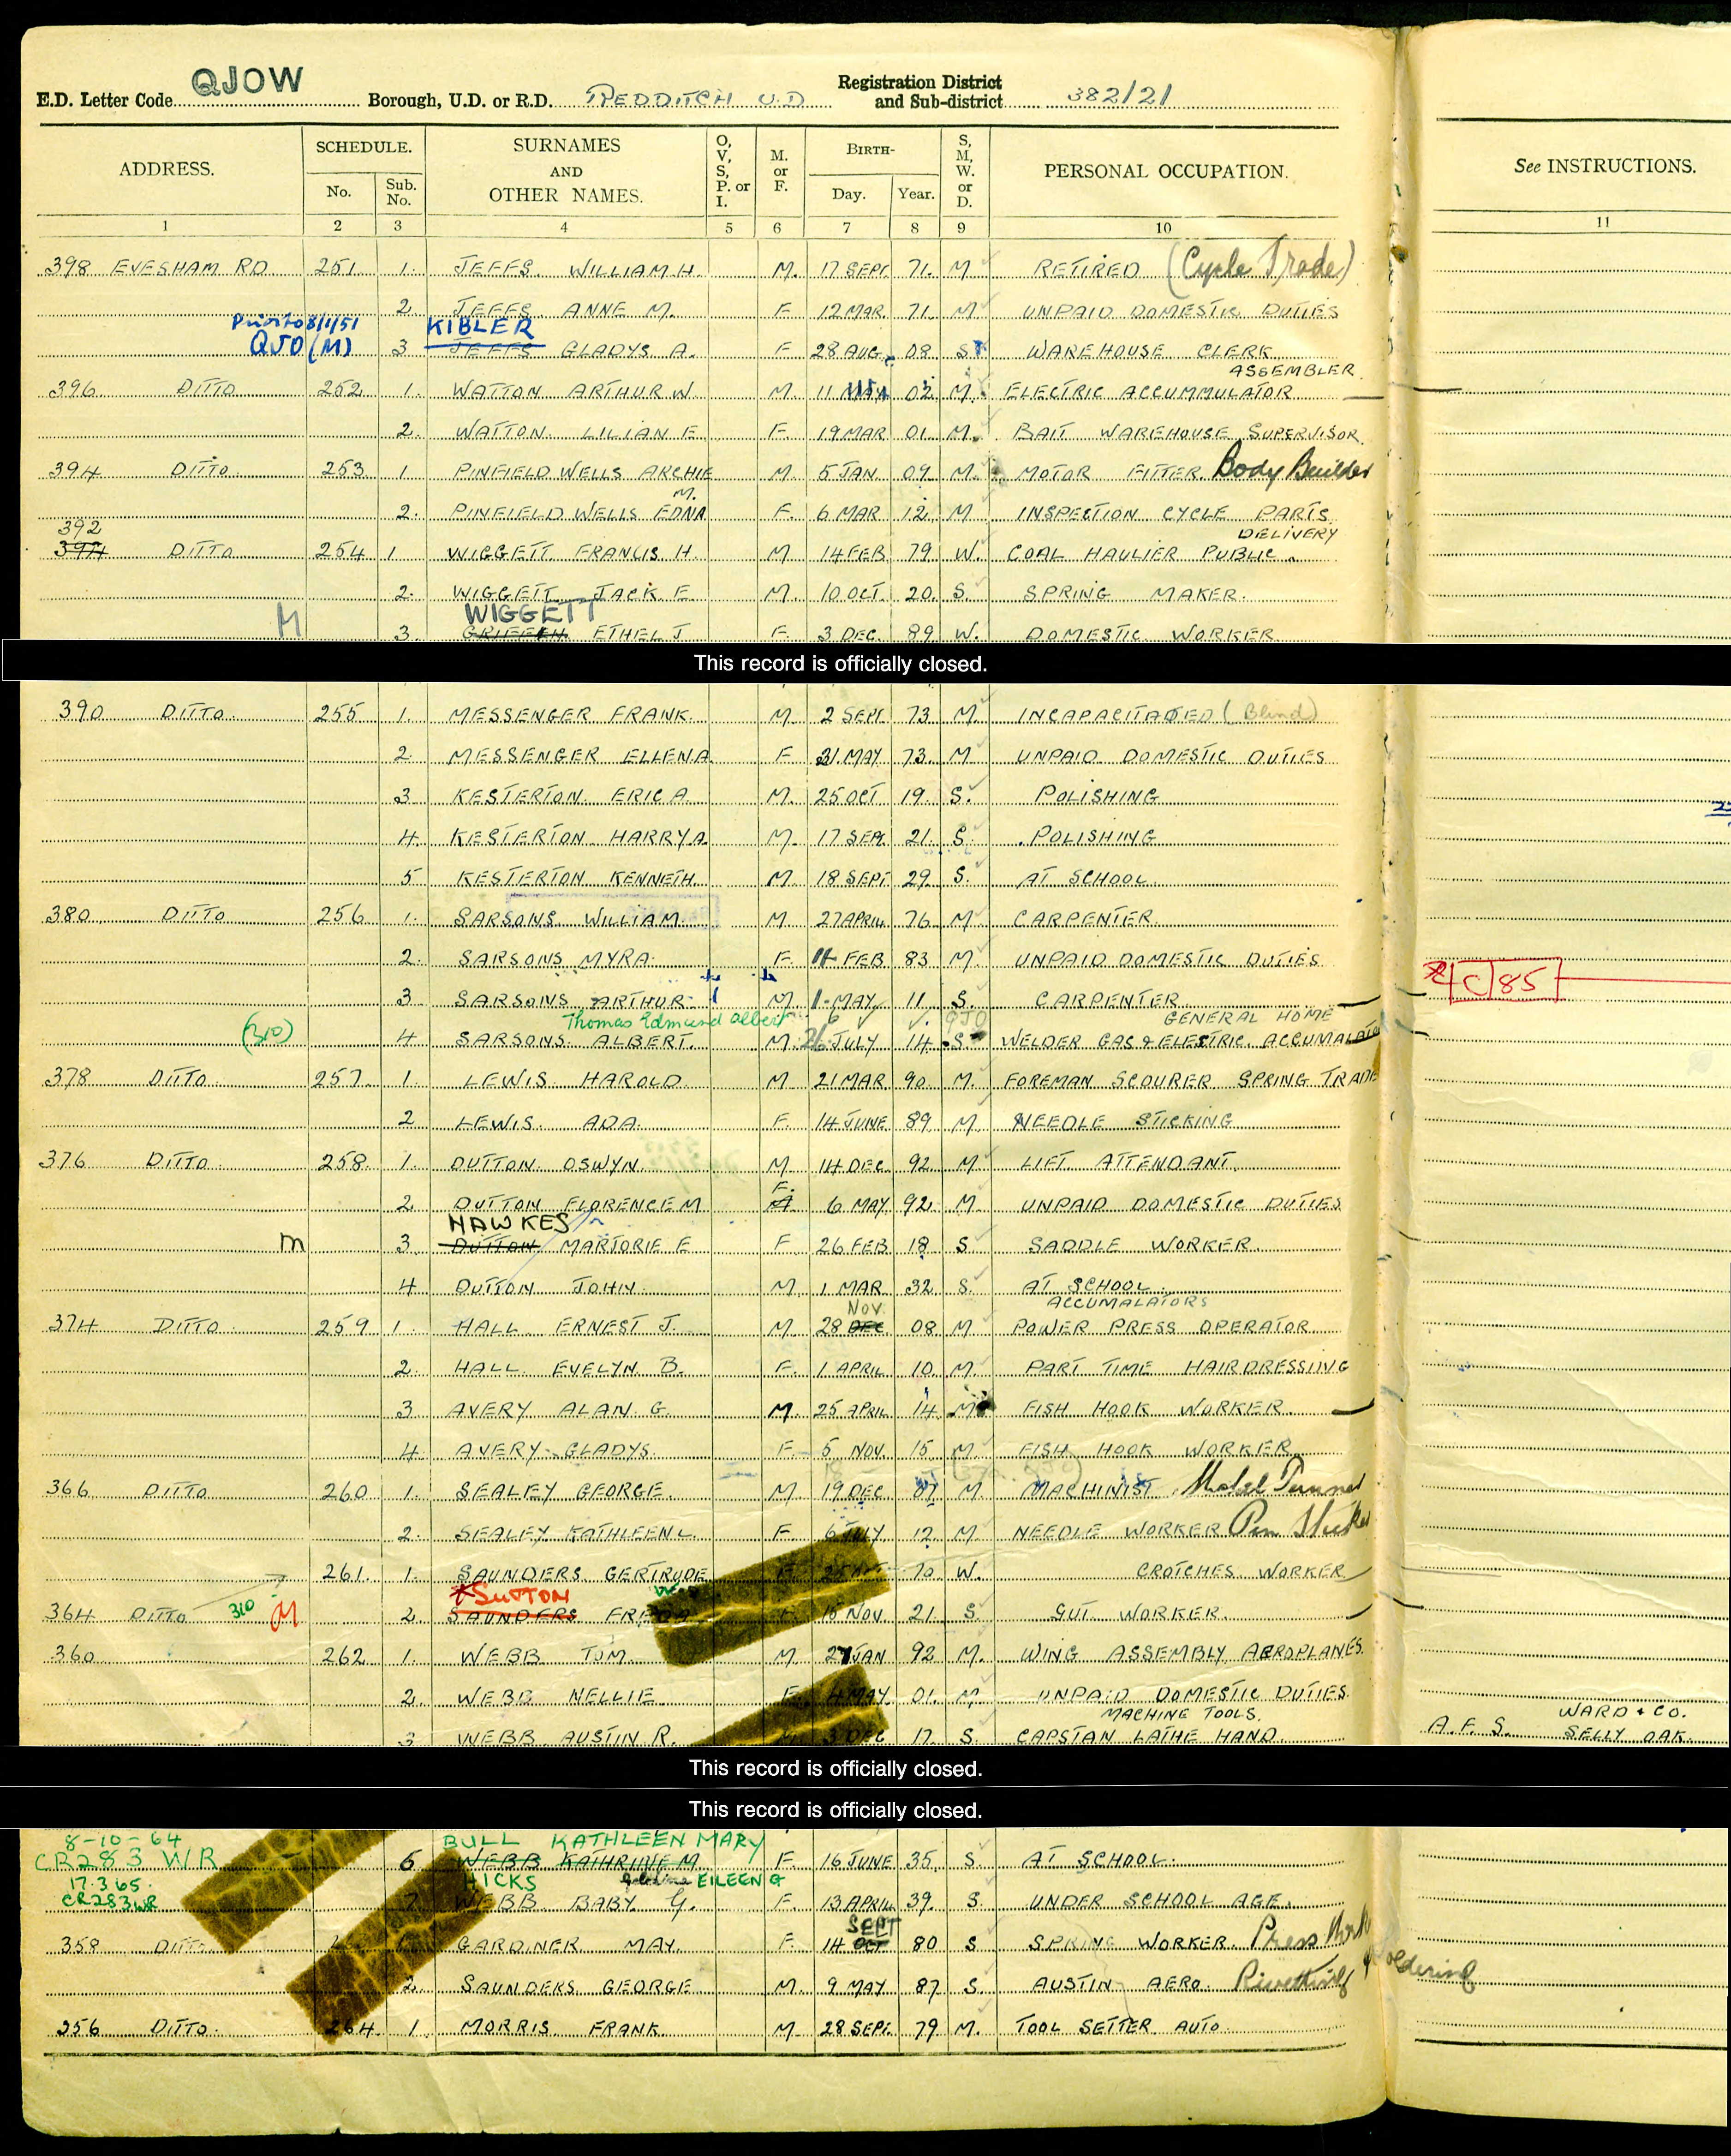 E.D. Letter Code QJOW Borough, U.D. or R.D. REDDITCH U.D Registration District and Sub-district 382/21
ADDRESS. SCHEDULE. No. Sub. No. SURNAMES AND OTHER NAMES. O, V, S, P. or I. M. or F. BIRTH- Day. Year. S, M, W. or D. PERSONAL OCCUPATION. See INSTRUCTIONS.
1 2 3 4 5 6 7 8 9 10 11
398 EVESHAM RD 251 1. JEFFS WILLIAM H. M. 17 SEPT 71. M RETIRED (Cycle Trade)
2 JEFFS ANNE M. F 12 MAR 71. M UNPAID DOMESTIC DUTIES
Prior to 8/1/51 KIBLER
QJO (M) 3 JEFFS GLADYS A. F 28 AUG 08 S WAREHOUSE CLERK
ASSEMBLER
396 DITTO 252 1. WATTON ARTHUR W. M. 11 MAY 02 M. ELECTRIC ACCUMMULATOR
2. WATTON LILIAN E F. 19 MAR 01 M. BAIT WAREHOUSE SUPERVISOR
394 DITTO 253 1 PINFIELD WELLS ARCHIE M. 5 JAN 09 M. MOTOR FITTER. Body Builder
M.
2. PINFIELD WELLS EDNA F 6 MAR 12 M INSPECTION CYCLE PARTS
392 DELIVERY
394 DITTO 254 1 WIGGETT FRANCIS H. M 14 FEB 79 W. COAL HAULIER PUBLIC
2. WIGGETT JACK E M. 10 OCT 20. S. SPRING MAKER.
WIGGETT
M 3. GRIFFEN ETHEL J F. 3 DEC. 89 W. DOMESTIC WORKER
This record is officially closed.
390 DITTO 255 1. MESSENGER FRANK. M. 2 SEPT 73 M. INCAPACITATED (Blind)
2 MESSENGER ELLEN A F 31 MAY 73 M UNPAID DOMESTIC DUTIES
3 KESTERTON ERIC A M. 25 OCT 19. S. POLISHING
4. KESTERTON HARRY A. M 17 SEPT 21. S. POLISHING
5 KESTERTON KENNETH. M 18 SEPT 29. S. AT SCHOOL
380 DITTO 256 1. SARSONS WILLIAM. M 27 APRIL 76 M CARPENTER
2. SARSONS MYRA F. 11 FEB 83 M. UNPAID DOMESTIC DUTIES
C 85
3 SARSONS ARTHUR M 1 MAY 11 S. CARPENTER
Thomas Edmund Albert QJO GENERAL HOME
(310) 4 SARSONS ALBERT. M. 26 JULY 14 S WELDER GAS & ELECTRIC. ACCUMALATOR
378 DITTO 257. 1. LEWIS HAROLD M 21 MAR 90 M. FOREMAN SCOURER SPRING TRADE
2 LEWIS ADA F. 14 JUNE 89 M. NEEDLE STICKING
376 DITTO 258 1. DUTTON OSWYN M 14 DEC 92 M LIFT ATTENDANT.
F.
2 DUTTON FLORENCE M 6 MAY 92 M UNPAID DOMESTIC DUTIES
HAWKES
m 3 DUTTON MARJORIE E F 26 FEB 18 S SADDLE WORKER.
4 DUTTON JOHN M. 1 MAR 32 S. AT SCHOOL
NOV. ACCUMALATORS
374 DITTO 259 1. HALL ERNEST J. M 28 DEC 08 M POWER PRESS OPERATOR
2. HALL EVELYN B. F. 1 APRIL 10 M. PART TIME HAIRDRESSING
3 AVERY ALAN G. M. 25 APRIL 14 M FISH HOOK WORKER
4 AVERY GLADYS F 5 NOV. 15 M. FISH HOOK WORKER
366 DITTO 260 1. SEALEY GEORGE. M. 19 DEC 07 M. MACHINIST Metal Turner
2. SEALEY KATHLEEN L. F. 6 JULY 12 M NEEDLE WORKER Pin Sticker
261. 1. SAUNDERS GERTRUDE F 70 W. CROTCHES WORKER
SUTTON
364 DITTO 310 M 2. SAUNDERS FREDA F 15 NOV. 21. S. GUT WORKER
360 262 1. WEBB TOM. M. 27 JAN 92 M. WING ASSEMBLY AEROPLANES
2. WEBB NELLIE F. 4 MAY 01. M. UNPAID DOMESTIC DUTIES
MACHINE TOOLS. WARD & CO.
3 WEBB AUSTIN R. M. 3 DEC 17. S. CAPSTAN LATHE HAND A.F.S. SELLY OAK.
This record is officially closed.
This record is officially closed.
8-10-64 BULL KATHLEEN MARY
CR283 WR 6 WEBB KATHRINE M F. 16 JUNE 35 S. AT SCHOOL.
17.3.65. HICKS EILEEN G
CR283 WR 7 WEBB BABY G. F. 13 APRIL 39. S. UNDER SCHOOL AGE.
SEPT
358 DITTO GARDINER MAY. F. 14 OCT 80 S SPRING WORKER. Press Work Soldering
2. SAUNDERS GEORGE M. 9 MAY 87 S. AUSTIN AERO. Rivetting
356 DITTO 264. 1. MORRIS FRANK. M 28 SEPT. 79 M. TOOL SETTER AUTO